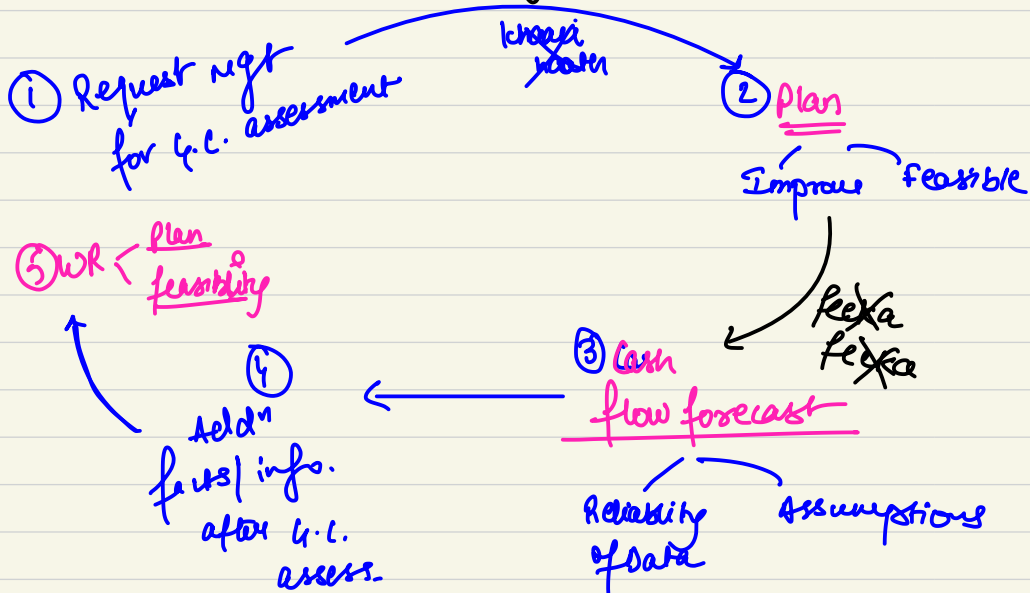 ① Request mgt
for G.C. assessment
② Plan
Improve Feasible
③ Cash
flow forecast
Reliability
of Data
Assumptions
④
Addⁿ
facts/info.
after G.C.
assess.
⑤ WR < Plan
feasiblity